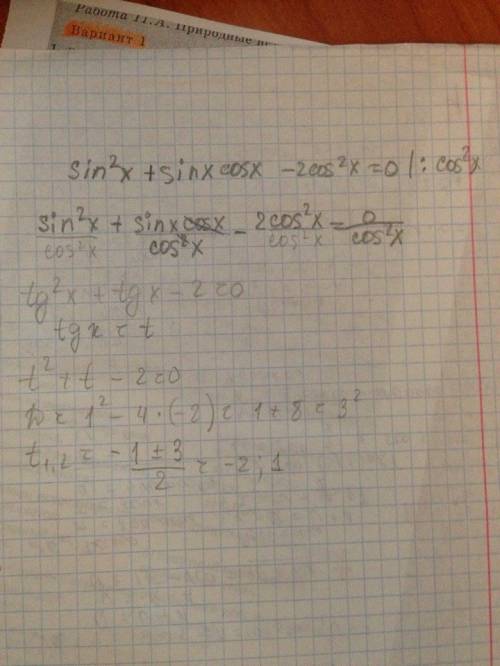 Работа П.А. Природные
Вариант 1
sin²x + sinx cosx - 2cos²x = 0 | : cos²x
sin²x/cos²x + sinx cosx/cos²x - 2cos²x/cos²x = 0/cos²x
tg²x + tgx - 2 = 0
tgx = t
t² + t - 2 = 0
D = 1² - 4·(-2) = 1 + 8 = 3²
t₁,₂ = -1 ± 3/2 = -2; 1